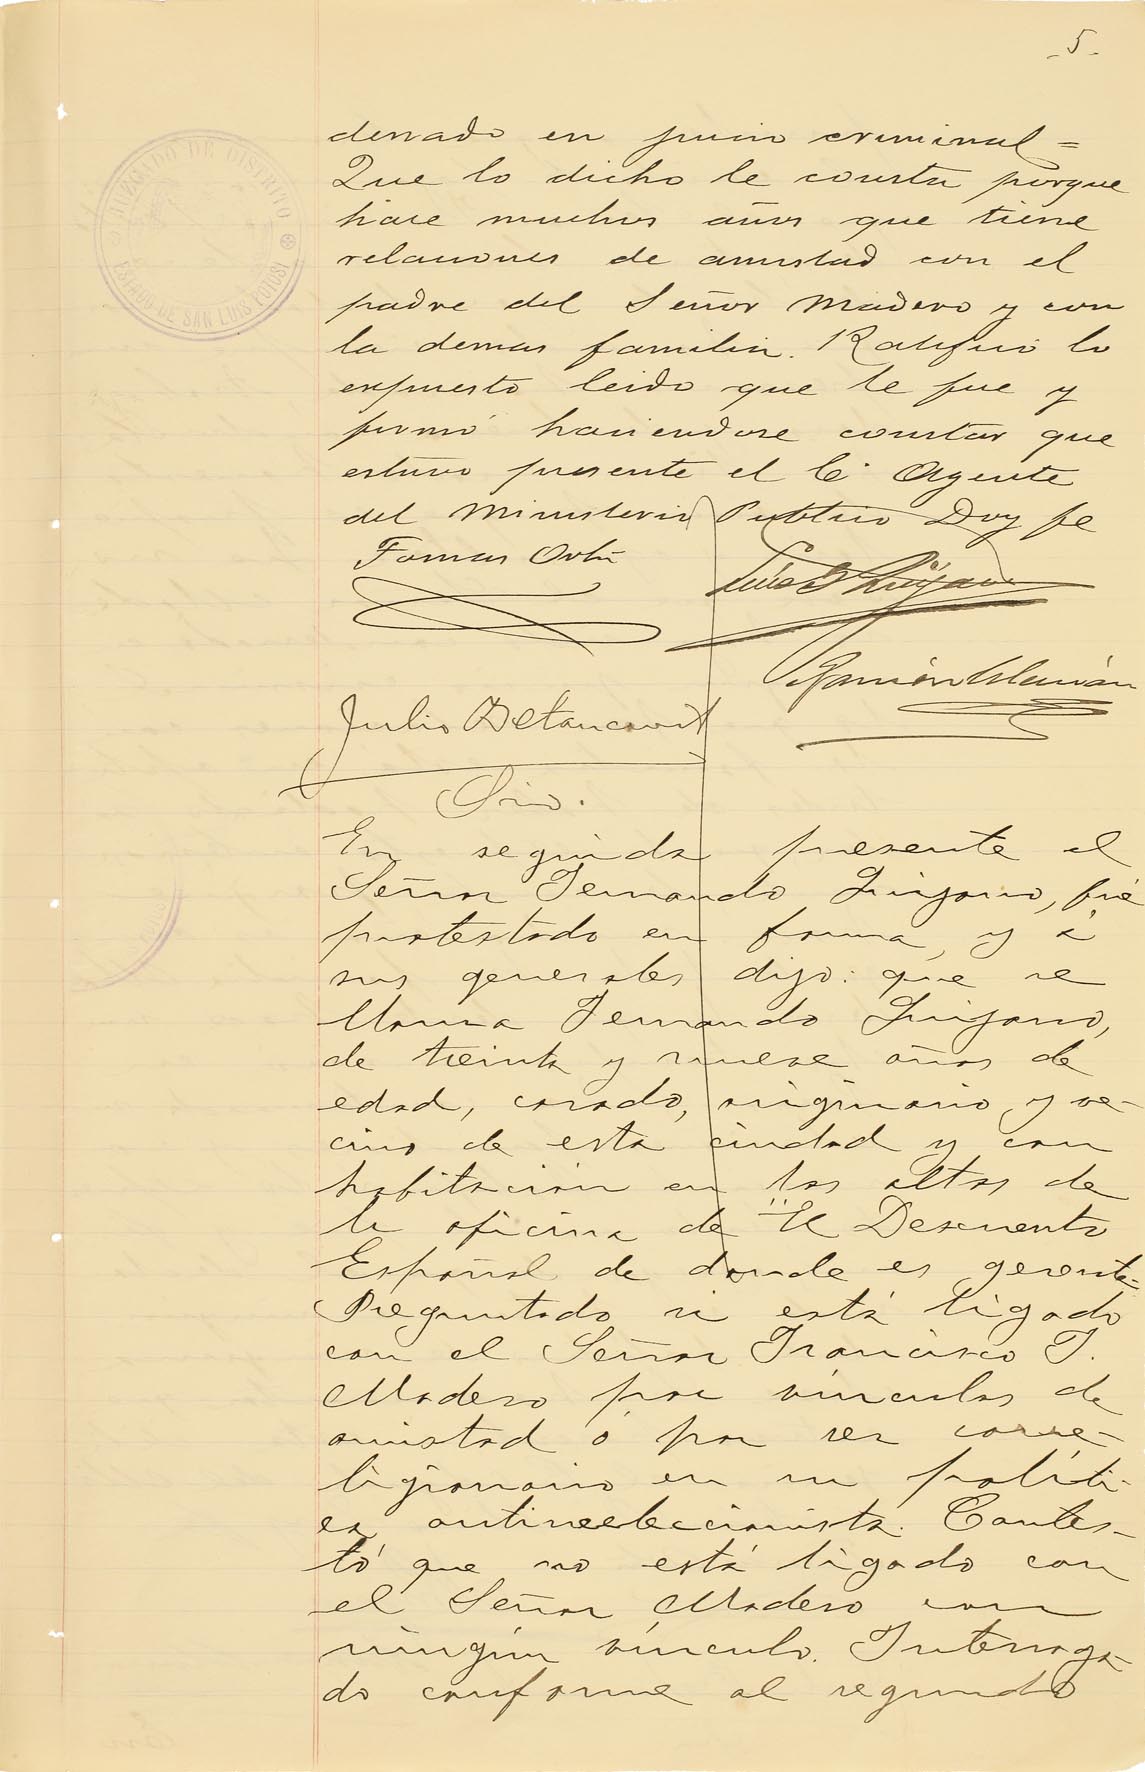 -5-
JUZGADO DE DISTRITO
ESTADO DE SAN LUIS POTOSI
denado en juicio criminal =
Que lo dicho le consta porque
hace muchos años que tiene
relaciones de amistad con el
padre del Señor Madero y con
la demas familia. Ratificó lo
expuesto leido que le fue y
firmó haciendose constar que
estuvo presente el C. Agente
del Ministerio Publico Doy fe
Tomas
Ramón
Julio Betancourt
Srio.
En seguida presente el
Señor Fernando Quijano, fué
protestado en forma, y á
sus generales dijo: que se
llama Fernando Quijano,
de treinta y nueve años de
edad, casado, originario y ve-
cino de esta ciudad y con
habitación en los altos de
la oficina de "El Descuento
Español de donde es gerente-
Preguntado si está ligado
con el Señor Francisco I.
Madero por vinculos de
amistad ó por ser corre-
ligionario en su políti-
ca antireeleccionista. Contes-
tó que no está ligado con
el Señor Madero con
ningún vínculo. Interroga-
do conforme al segundo